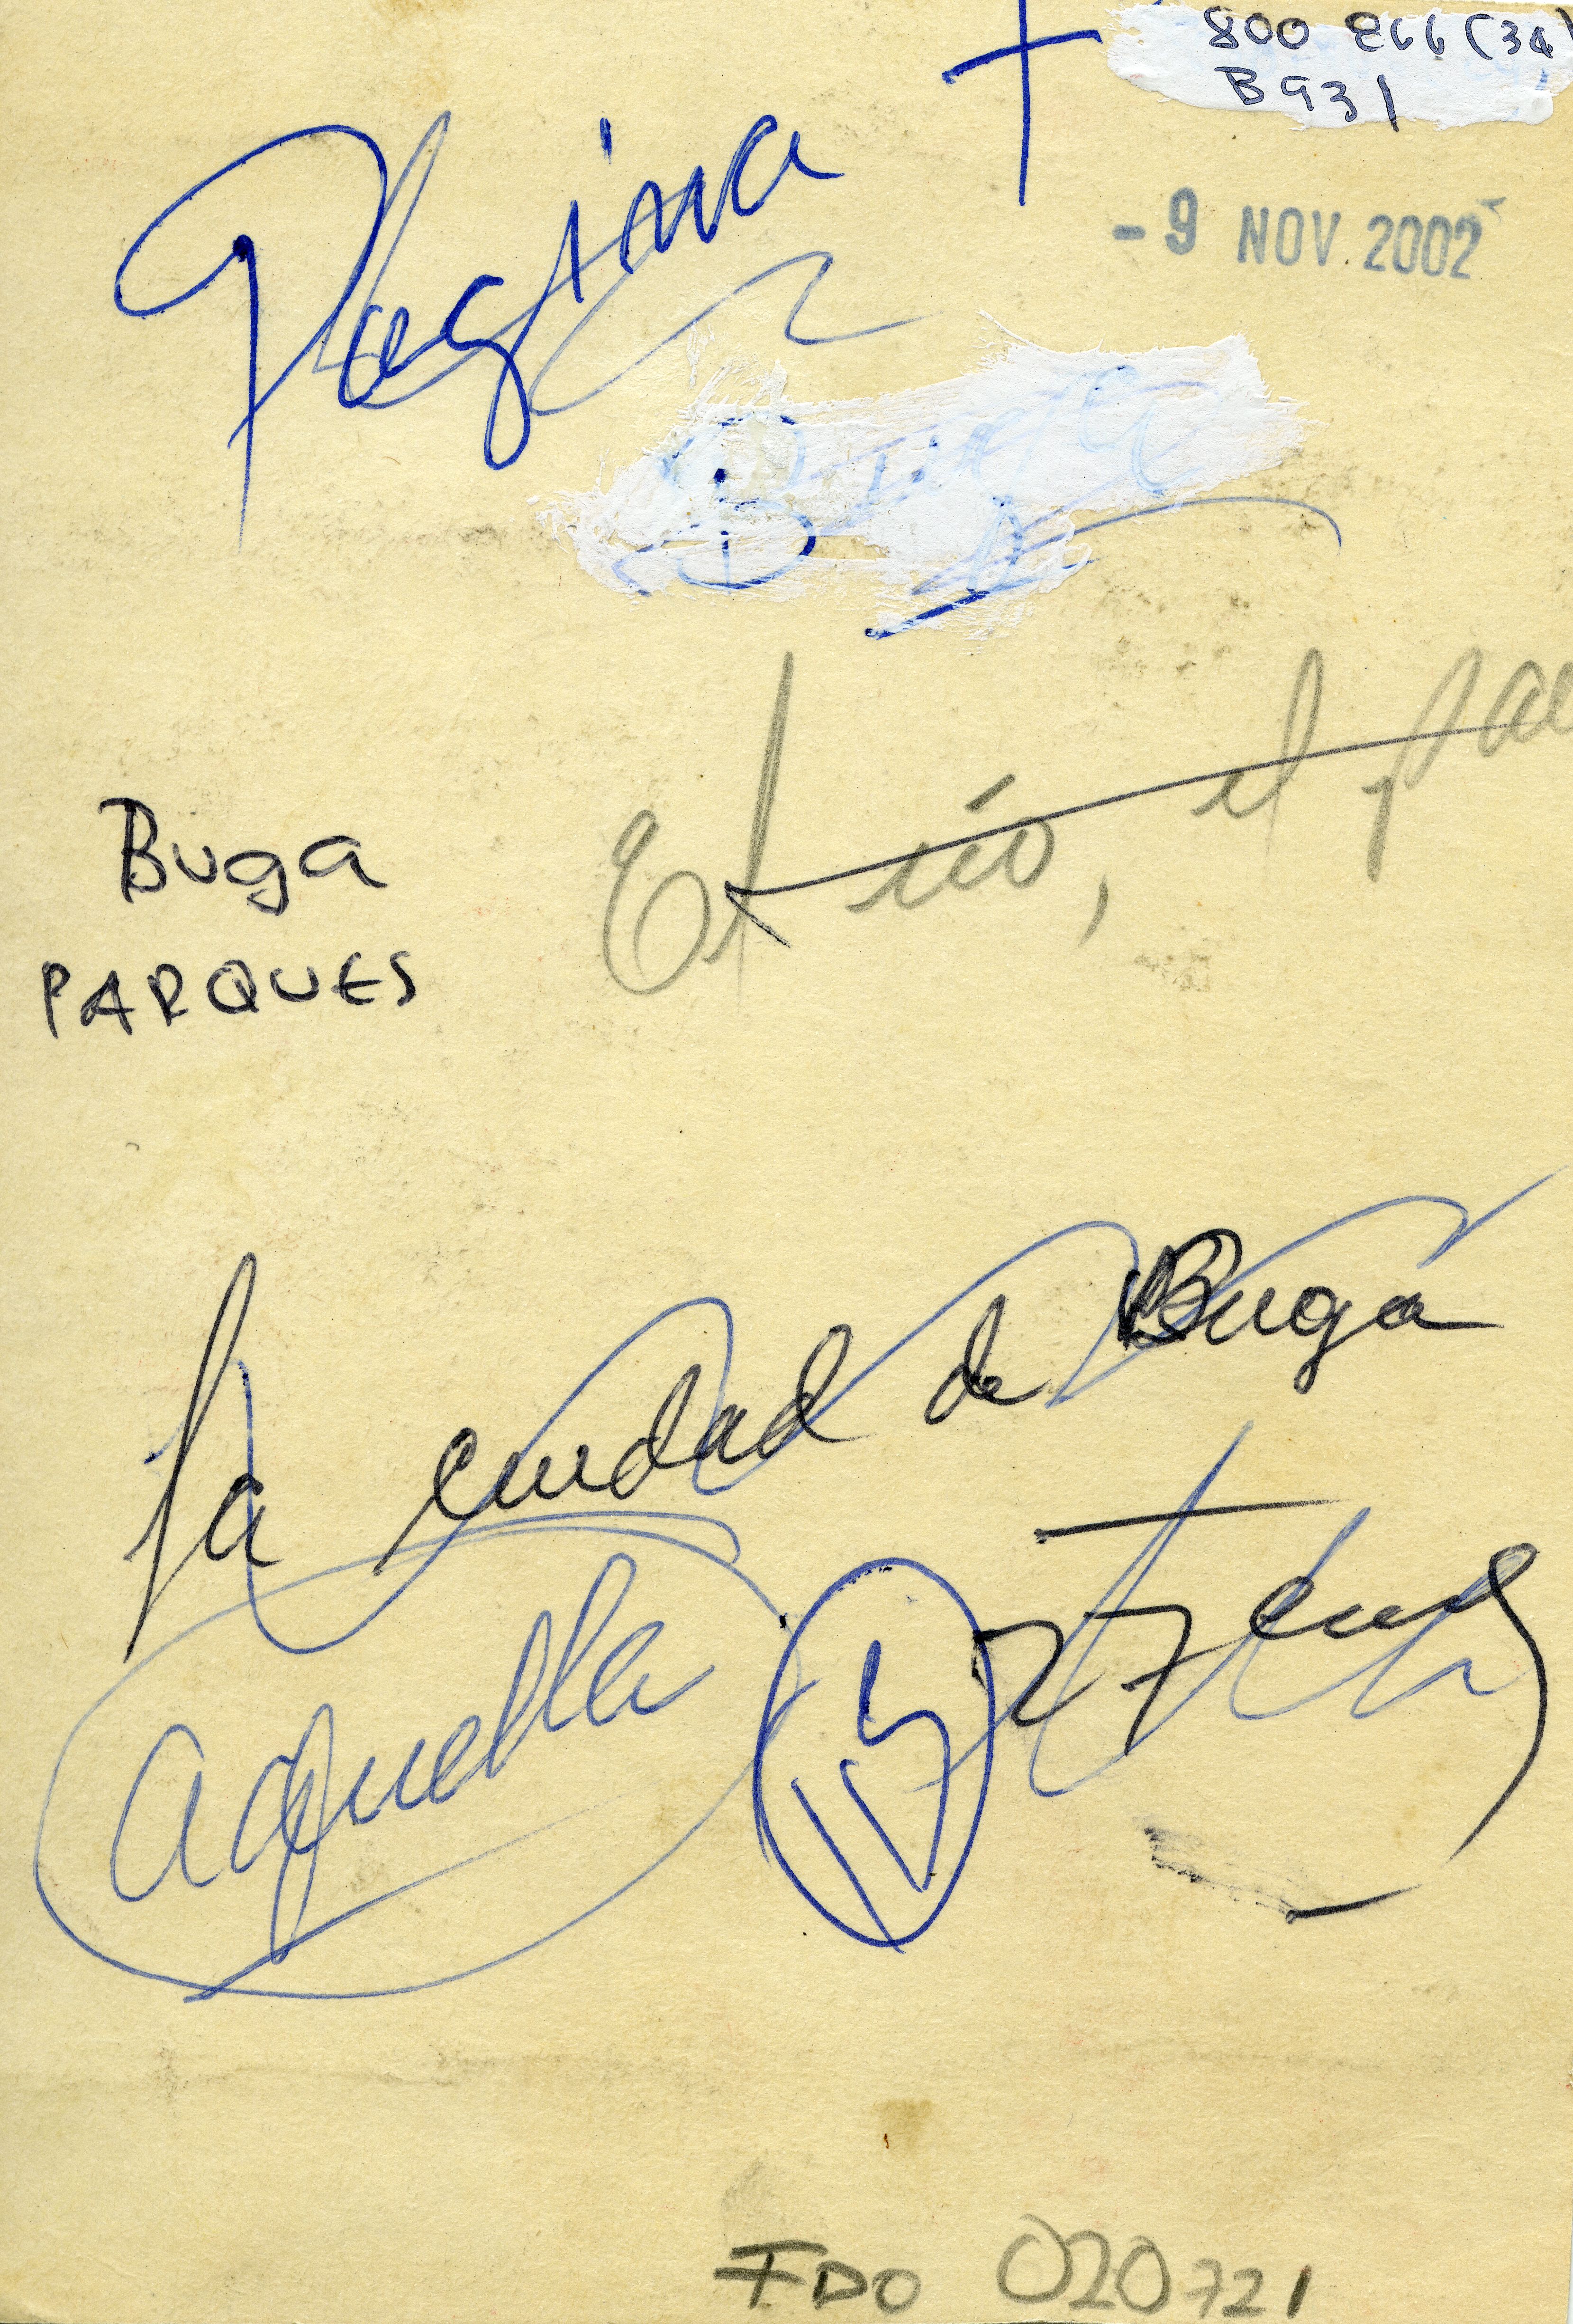 800 866 (34)
B931
Pagina
- 9 NOV. 2002
El río, el
Buga
PARQUES
La ciudad de Buga
27 cms
aquella
15
FDO 020721